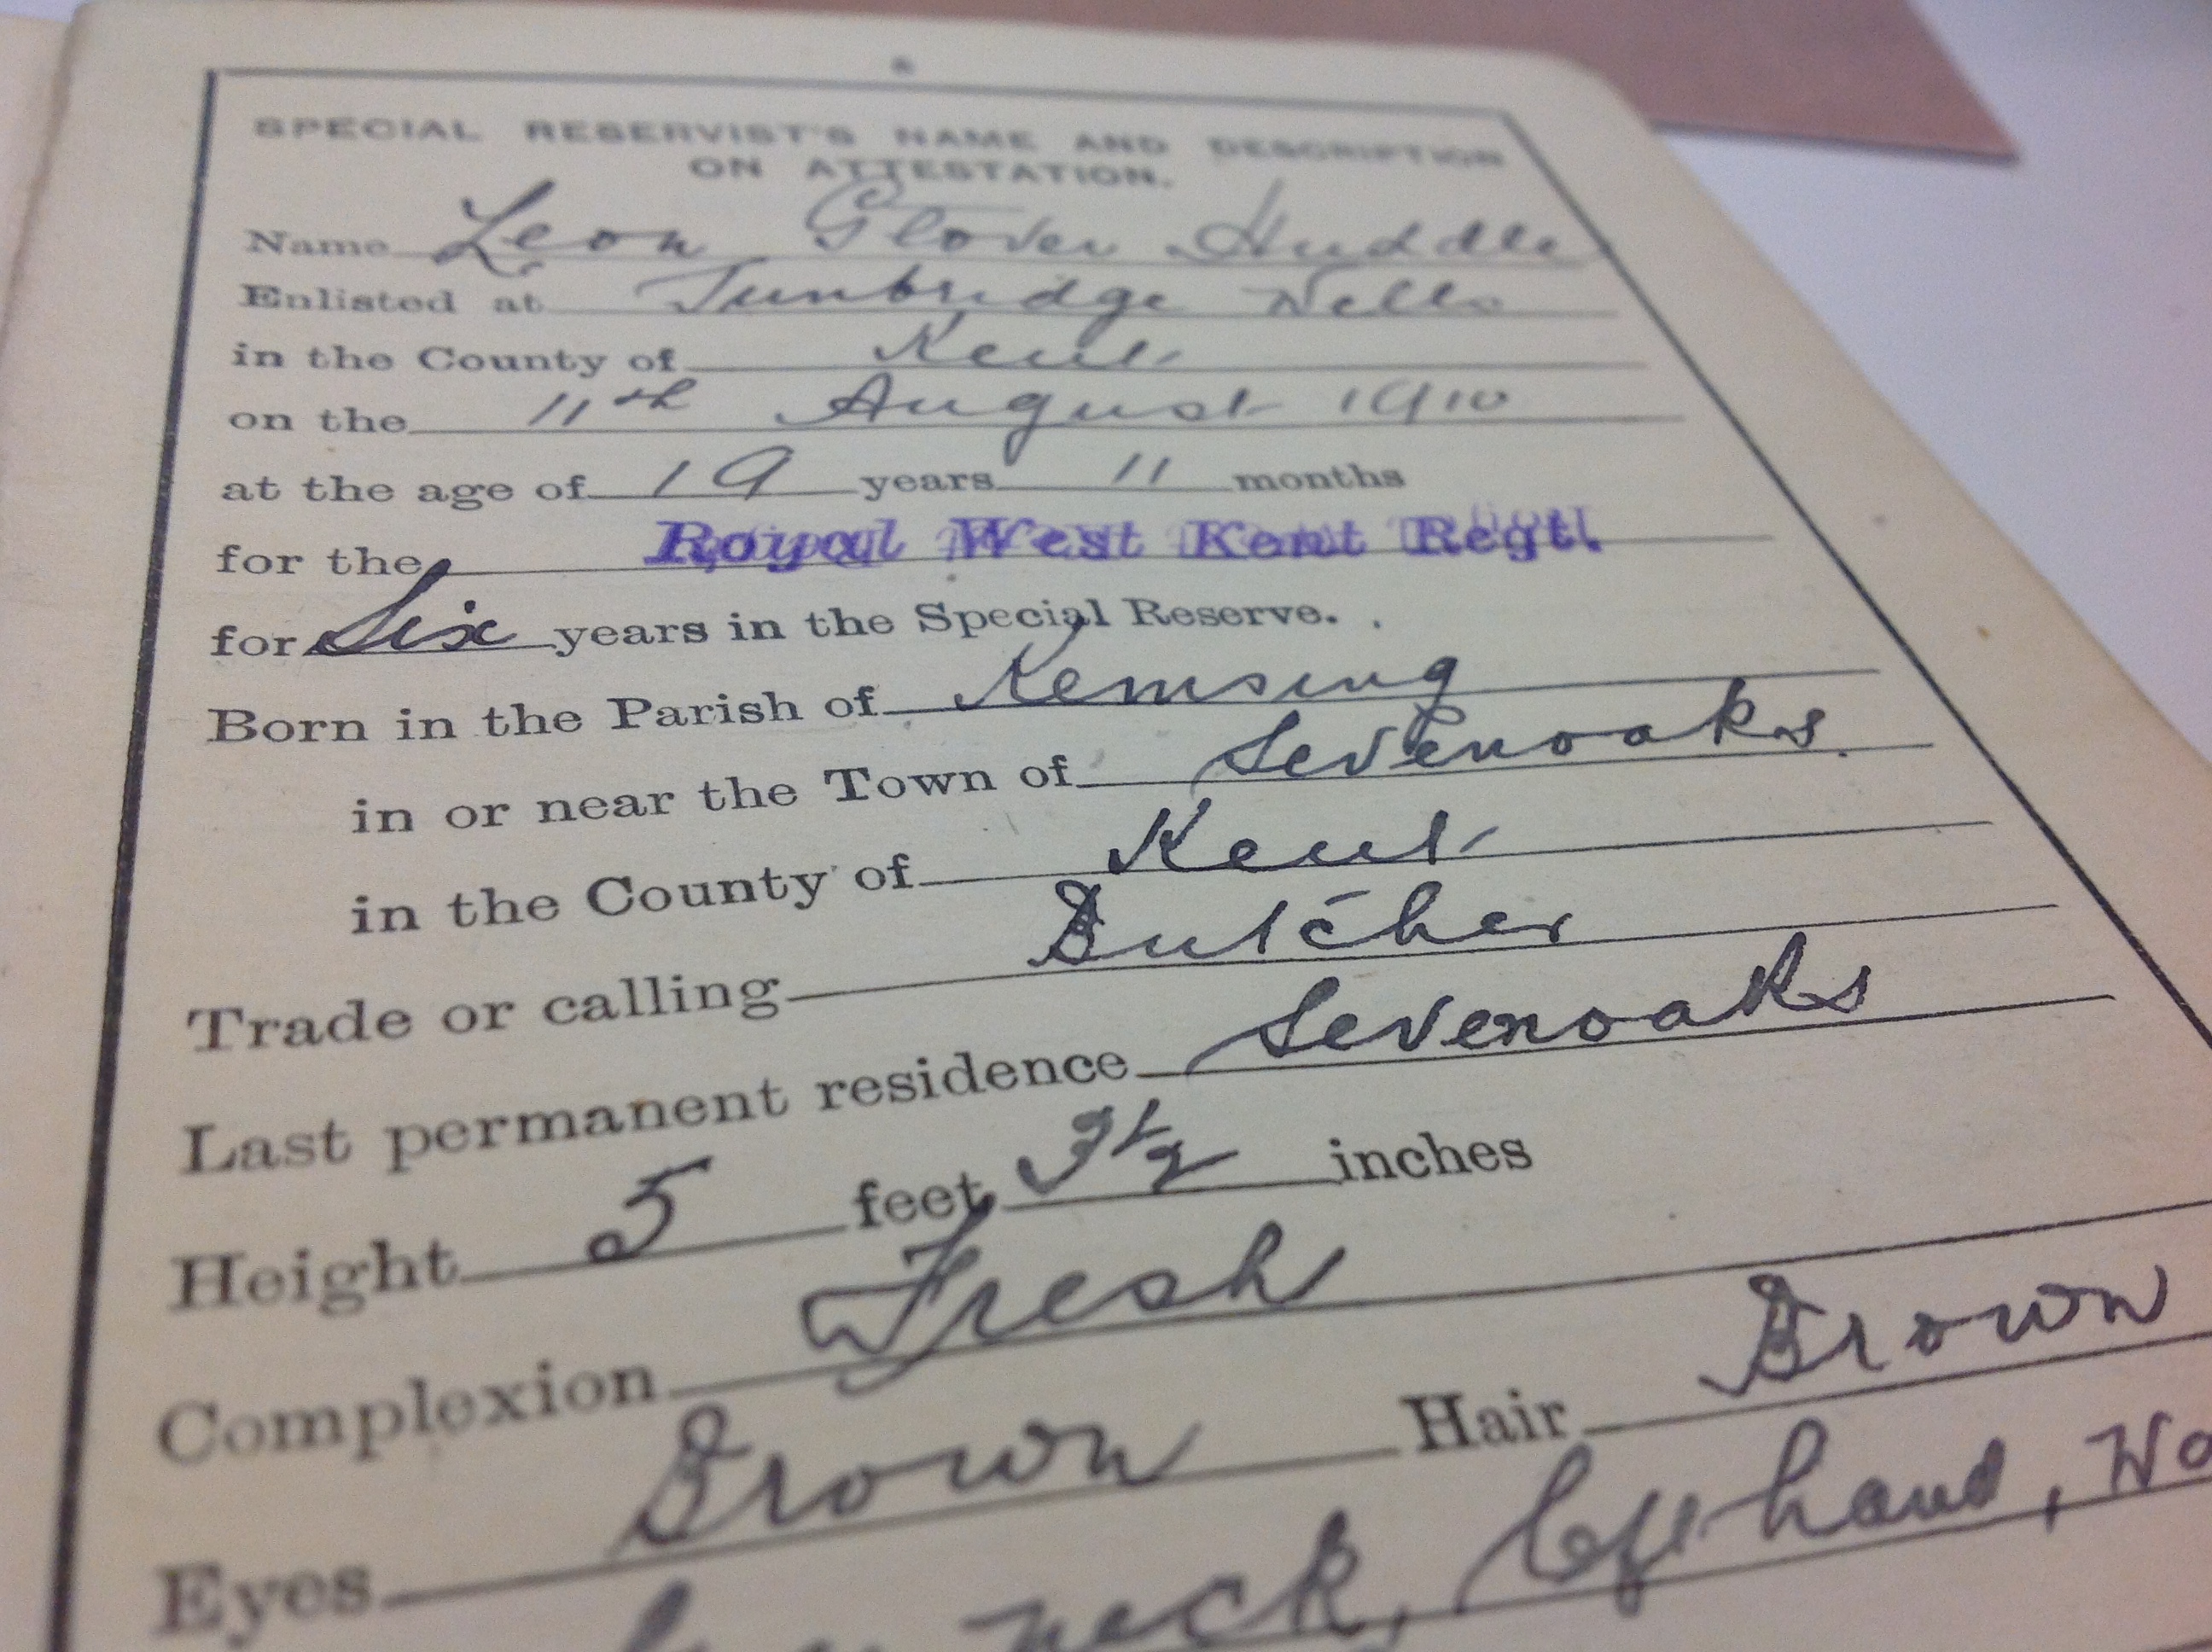 SPECIAL RESERVIST'S NAME AND DESCRIPTION
ON ATTESTATION.
Name Leon Glover Huddle
Enlisted at Tunbridge Wells
in the County of Kent
on the 11th August 1910
at the age of 19 years 11 months
for the Royal West Kent Regt.
for Six years in the Special Reserve.
Born in the Parish of Kemsing
in or near the Town of Sevenoaks.
in the County of Kent
Trade or calling Butcher
Last permanent residence Sevenoaks
Height 5 feet 3½ inches
Complexion Fresh
Eyes Brown Hair Brown
neck, left hand,